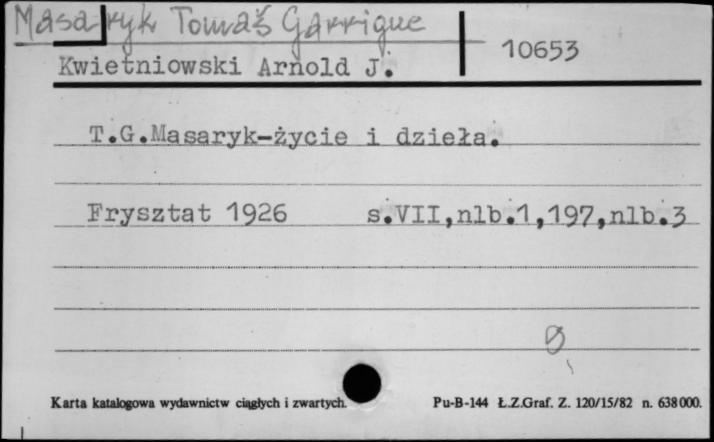 Masaryk Tomaš Garrigue
Kwietniowski Arnold J.
10653
T.G.Masaryk-życie i dzieła.
Frysztat 1926 s.VII,nlb.1,197,nlb.3
Karta katalogowa wydawnictw ciągłych i zwartych.
Pu-B-144 Ł.Z.Graf. Z. 120/15/82 n. 638000.